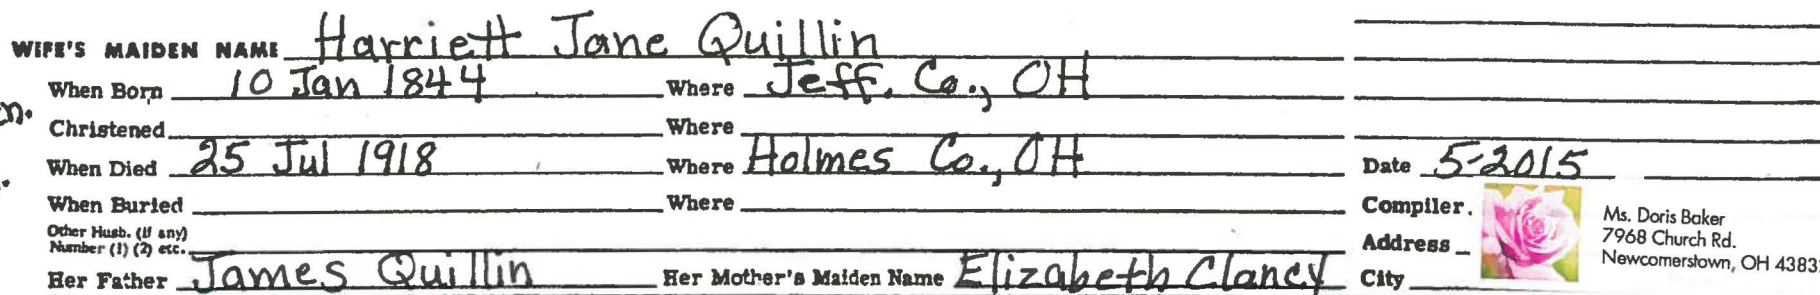 WIFE'S MAIDEN NAME Harriett Jane Quillin
When Born 10 Jan 1844 Where Jeff. Co., OH
Christened Where
When Died 25 Jul 1918 Where Holmes Co., OH Date 5-2015
When Buried Where Compiler.
Other Husb. (if any)
Number (1) (2) etc. Address
Her Father James Quillin Her Mother's Maiden Name Elizabeth Clancy City
Ms. Doris Baker
7968 Church Rd.
Newcomerstown, OH 4383